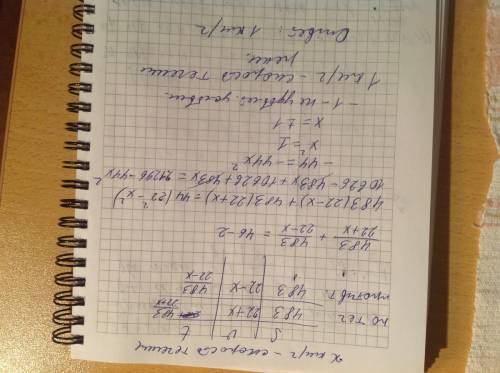 x км/ч - скорость течения
S | v | t
по теч | 483 | 22+x | 483/22+x
против т. | 483 | 22-x | 483/22-x
483/22+x + 483/22-x = 46-2
483(22-x)+483(22+x)=44(22²-x²)
10626-483x+10626+483x=21296-44x²
-44=-44x²
x²=1
x=±1
-1 - не удовл. условию
1 км/ч - скорость течения
реки.
Ответ: 1 км/ч